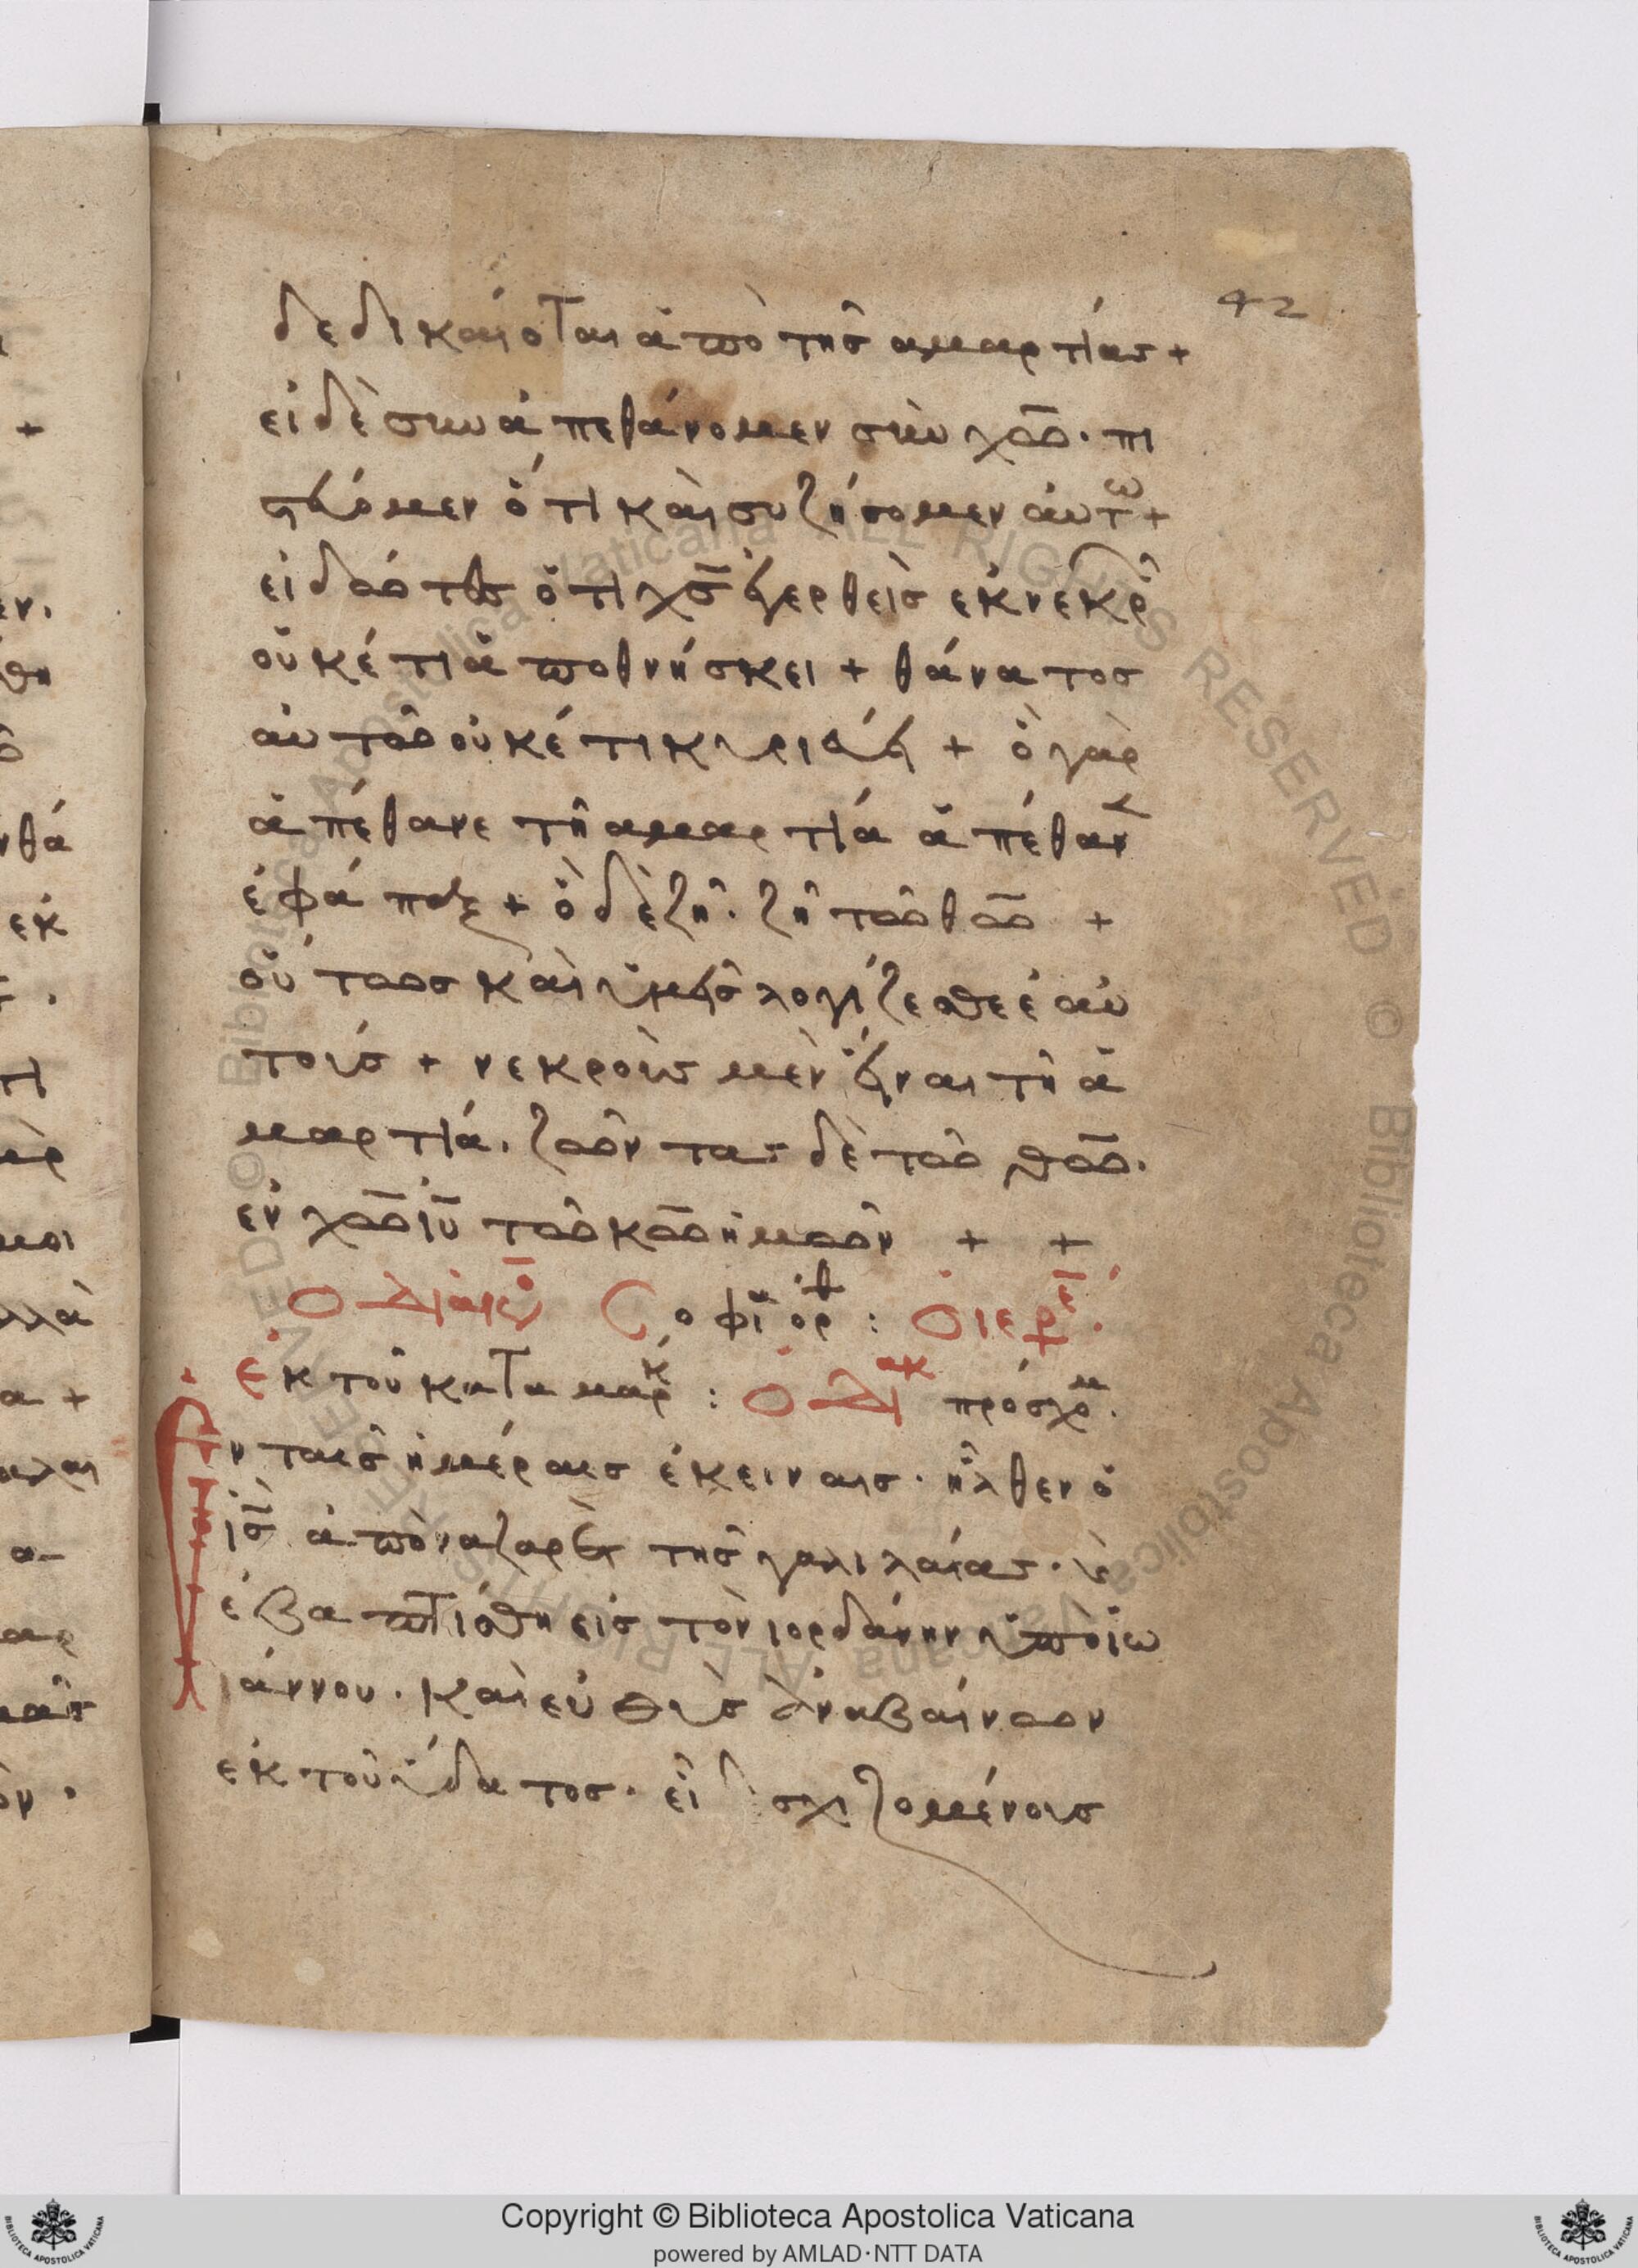 42
δεδικαίοται ἀπὸ τῆς αμαρτίας +
εἰ δὲ συναπεθάνομεν σὺν χω̅. πι
στεύομεν ὅτι καὶ συζήσομεν αὐτῶ +
εἰδώτες ὅτι χσ̅ ἐγερθεὶς ἐκ νεκρ
οὐκέτι ἀποθνήσκει + θάνατος
αὐτῶ οὐκέτι κυριεύει + ὁ γὰρ
ἀπέθανε τῆ αμαρτία ἀπέθαν
ἐφάπαξ + ὁ δὲ ζῆ. ζῆ τῶ θω̅ +
οὕτως καὶ ὑμεῖς λογίζεσθε ἑαυ
τοὶς + νεκροὺς μὲν εἶναι τῆ ἁ
μαρτία. ζῶντας δὲ τῶ θω̅.
ἐν χω̅ ιυ̅ τῶ κω̅ ἡμῶν + +
Ὁ διάκο Σοφί ὀρ : Ὁ ἱερε.
ἐκ τοῦ κατα μαρκ : Ὁ διακ πρόσχομ.
Εν ταις ἡμέραις ἐκειναις. ἦλθεν ὁ
ισ̅ ἀπὸ ναζαρὲτ τῆς γαλιλαίας. κὶ
ἐβαπτίσθη εἰς τὸν ιορδάνην ὑπὸ ϊω
άννου. καὶ εὐθὺς ἀναβαίνων
ἐκ τοῦ ὕδατος. εἶ σχιζομένους
Copyright © Biblioteca Apostolica Vaticana
powered by AMLAD·NTT DATA